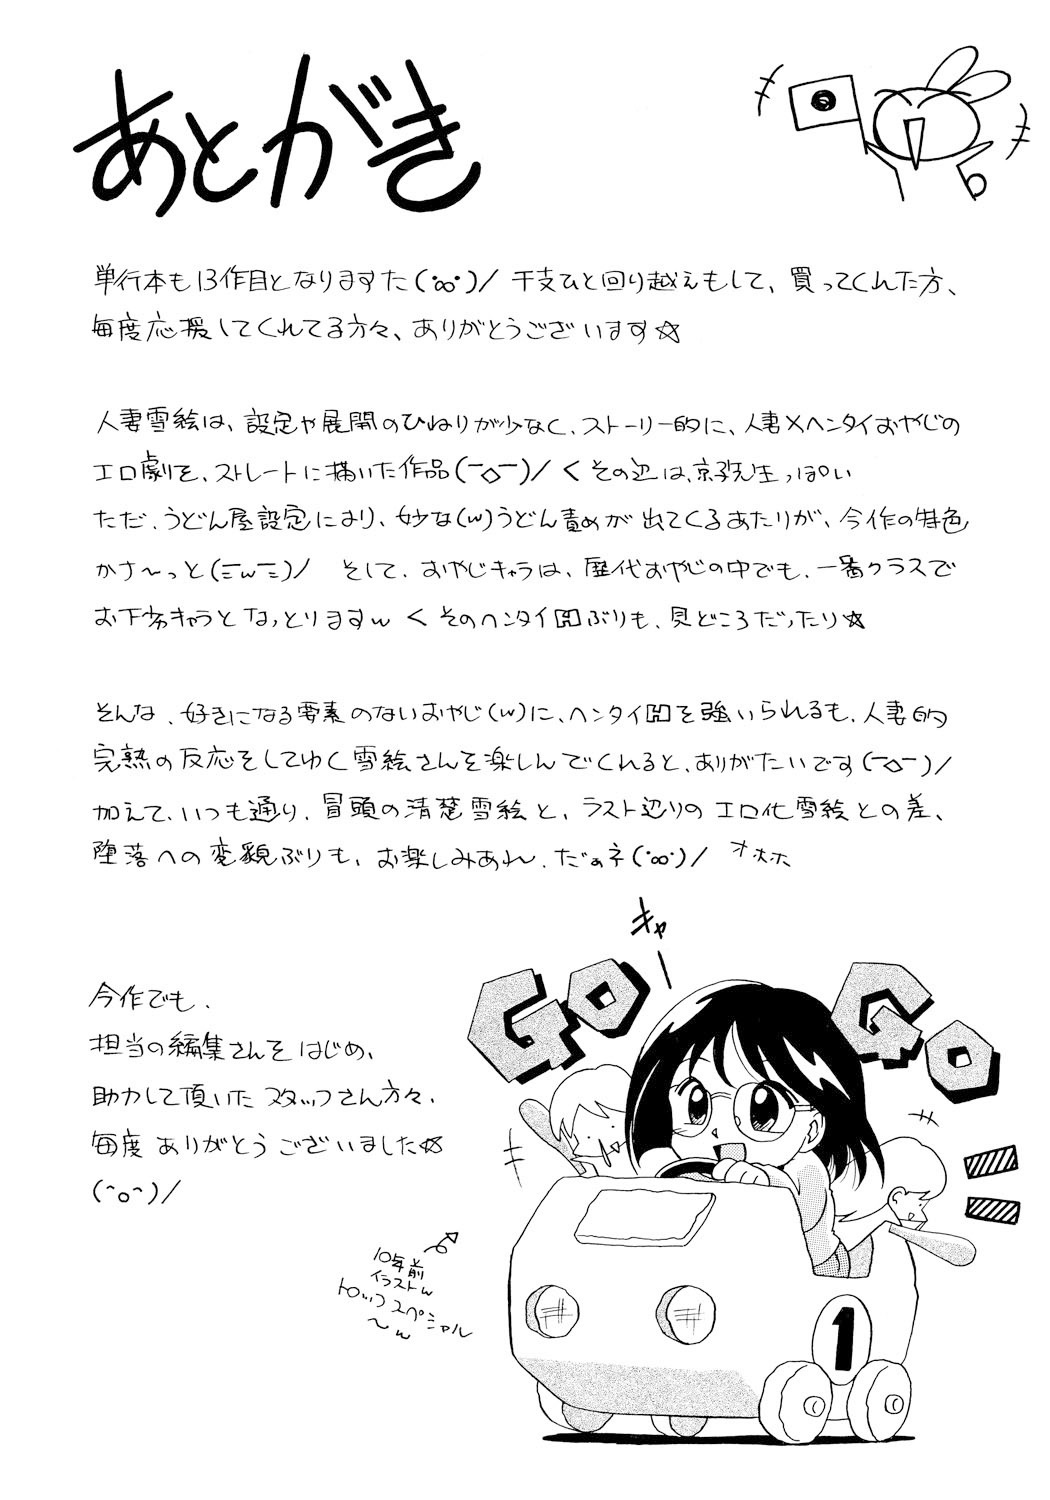 あとがき
単行本も13作目となりますた(･ω･)/ 干支ひと回り越えもして、買ってくれた方、
毎度応援してくれてる方々、ありがとうございます☆
人妻雪絵は、設定や展開のひねりが少なく、ストーリー的に、人妻×ヘンタイおやじの
エロ劇を、ストレートに描いた作品(￣◇￣)/ < その辺は、京子先生っぽい
ただ、うどん屋設定により、妙な(w)うどん責めが出てくるあたりが、今作の特色
かさ〜っと(ΞωΞ)/ そして、おやじキャラは、歴代おやじの中でも、一番クラスで
お下劣キャラとなっとりますw < そのヘンタイHぶりも、見どころだったり☆
そんな、好きになる要素のないおやじ(w)に、ヘンタイHを強いられるも、人妻的
完熟の反応をしてゆく雪絵さんを楽しんでくれると、ありがたいです(￣◇￣)/
加えて、いつも通り、冒頭の清楚雪絵と、ラスト辺りのエロ化雪絵との差、
堕落への変貌ぶりも、お楽しみあれ、だぁネ(･ω･)/ オホホ
キャ
GO GO
今作でも、
担当の編集さんをはじめ、
助力して頂いたスタッフさん方々、
毎度ありがとうございました☆
(^o^)/
10年前
イラストw
トップスペシャル
〜w
1